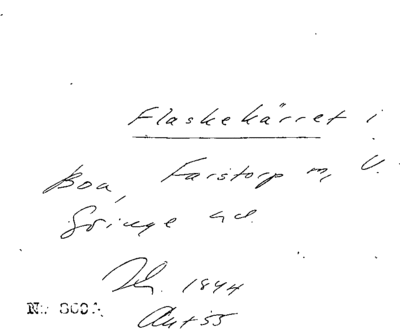 Flaskekärret i
Boa, Farstorp m, V.
Göinge hd.
Th. 1844
Ant 55
No 860